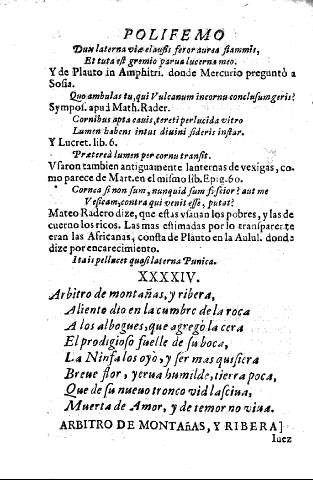 POLIFEMO
Dux laterna viæ clausis feror aurea flammis,
Et tuta est gremio parua lucerna meo.
Y de Plauto in Amphitri. donde Mercurio preguntò a
Sosia.
Quo ambulas tu, qui Vulcanum in cornu conclusum geris?
Sympos. apud Math. Rader.
Cornibus apta cauis, tereti perlucida vitro
Lumen habens intus diuini sideris instar.
Y Lucret. lib. 6.
Prætereà lumen per cornu transit.
Vsaron tambien antiguamente lanternas de vexigas, co-
mo parece de Mart. en el mismo lib. Epig. 60.
Cornea si non sum, nunquid sum fuscior? aut me
Vesicam, contra qui venit esse, putat?
Mateo Radero dize, que estas vsauan los pobres, y las de
cuerno los ricos. Las mas estimadas por lo transparēte
eran las Africanas, consta de Plauto en la Aulul. donde
dize por encarecimiento.
Ita is pellucet quasi laterna Punica.
XXXXIV.
Arbitro de montañas, y ribera,
Aliento dio en la cumbre de la roca
A los albogues, que agregò la cera
El prodigioso fuelle de su boca,
La Ninfa los oyò, y ser mas quisiera
Breue flor, yerua humilde, tierra poca,
Que de su nueuo tronco vid lasciua,
Muerta de Amor, y de temor no viua.
ARBITRO DE MONTAñAS, Y RIBERA]
Iuez